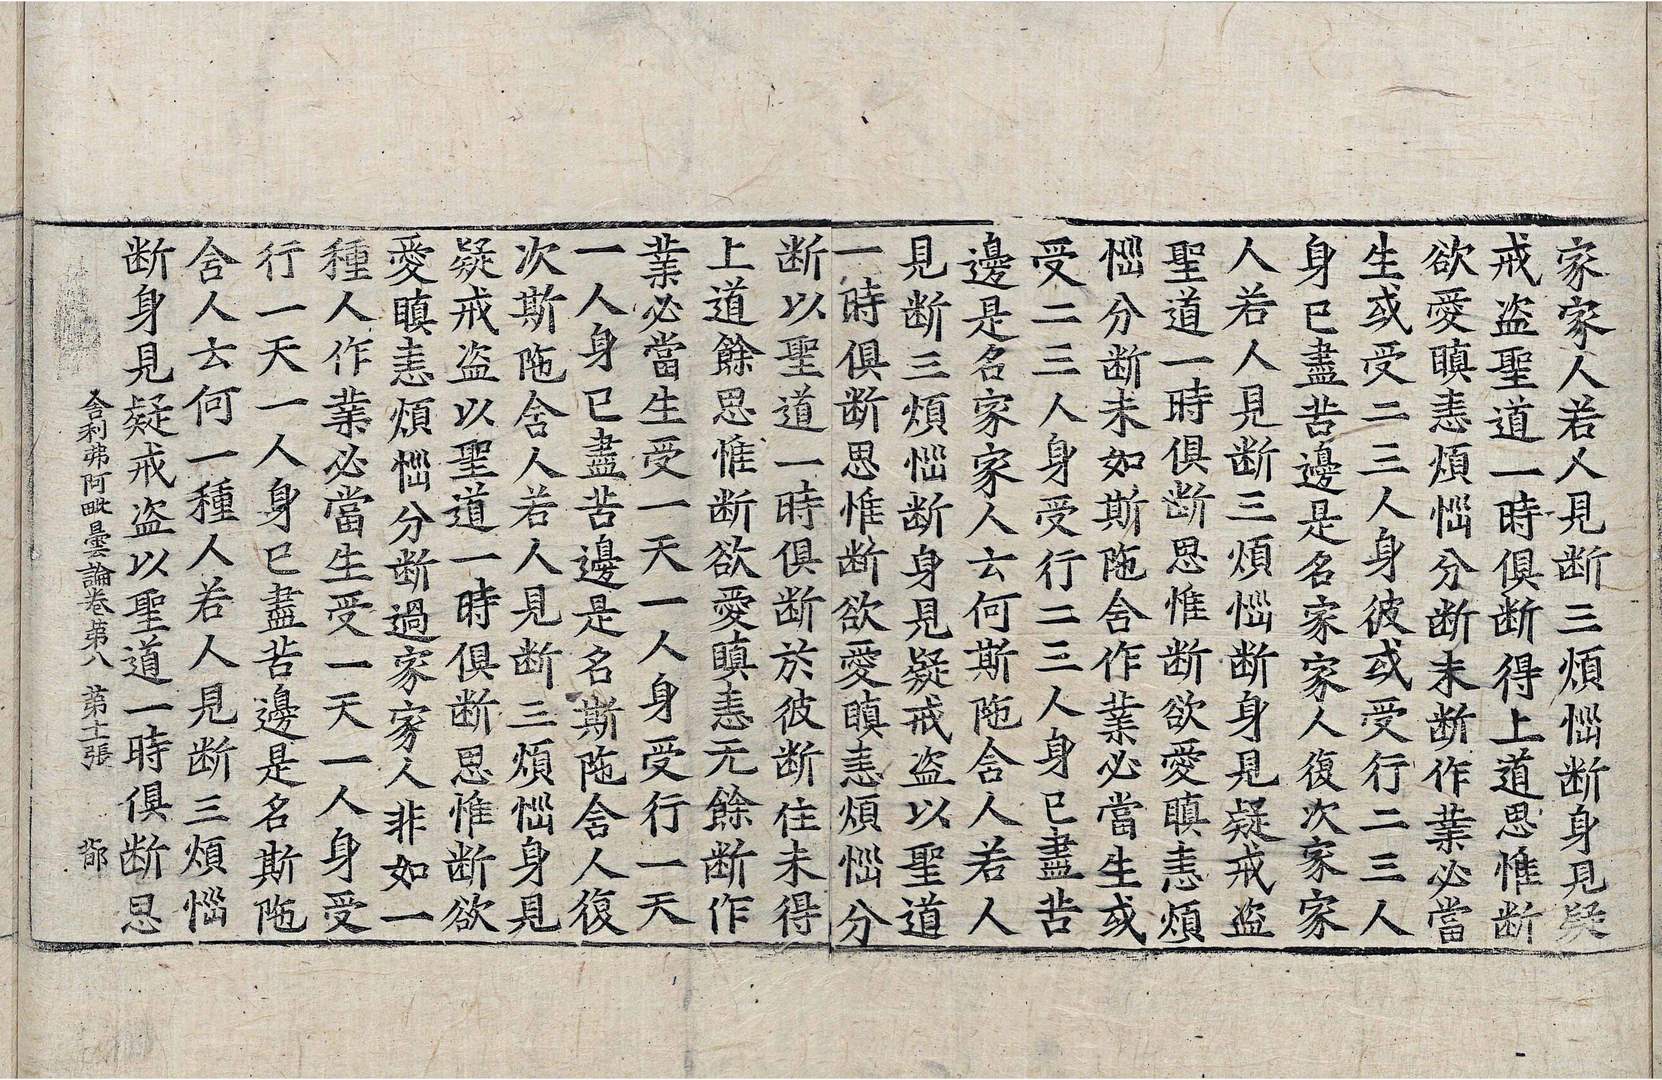 家家人若人見断三煩惱断身見疑
戒盗聖道一時俱断得上道思惟断
欲愛瞋恚煩惱分断未断作業必當
生或受二三人身彼或受行二三人
身已盡苦邊是名家家人復次家家
人若人見断三煩惱断身見疑戒盗
聖道一時俱断思惟断欲愛瞋恚煩
惱分断未如斯陁含作業必當生或
受二三人身受行二三人身已盡苦
邊是名家家人云何斯陁含人若人
見断三煩惱断身見疑戒盗以聖道
一時俱断思惟断欲愛瞋恚煩惱分
断以聖道一時俱断於彼断住未得
上道餘思惟断欲愛瞋恚无餘断作
業必當生受一天一人身受行一天
一人身已盡苦邊是名斯陁含人復
次斯陁含人若人見断三煩惱身見
疑戒盗以聖道一時俱断思惟断欲
愛瞋恚煩惱分断過家家人非如一
種人作業必當生受一天一人身受
行一天一人身已盡苦邊是名斯陁
含人云何一種人若人見断三煩惱
断身見疑戒盗以聖道一時俱断思
舍利弗阿毗曇論卷第八 第十一張